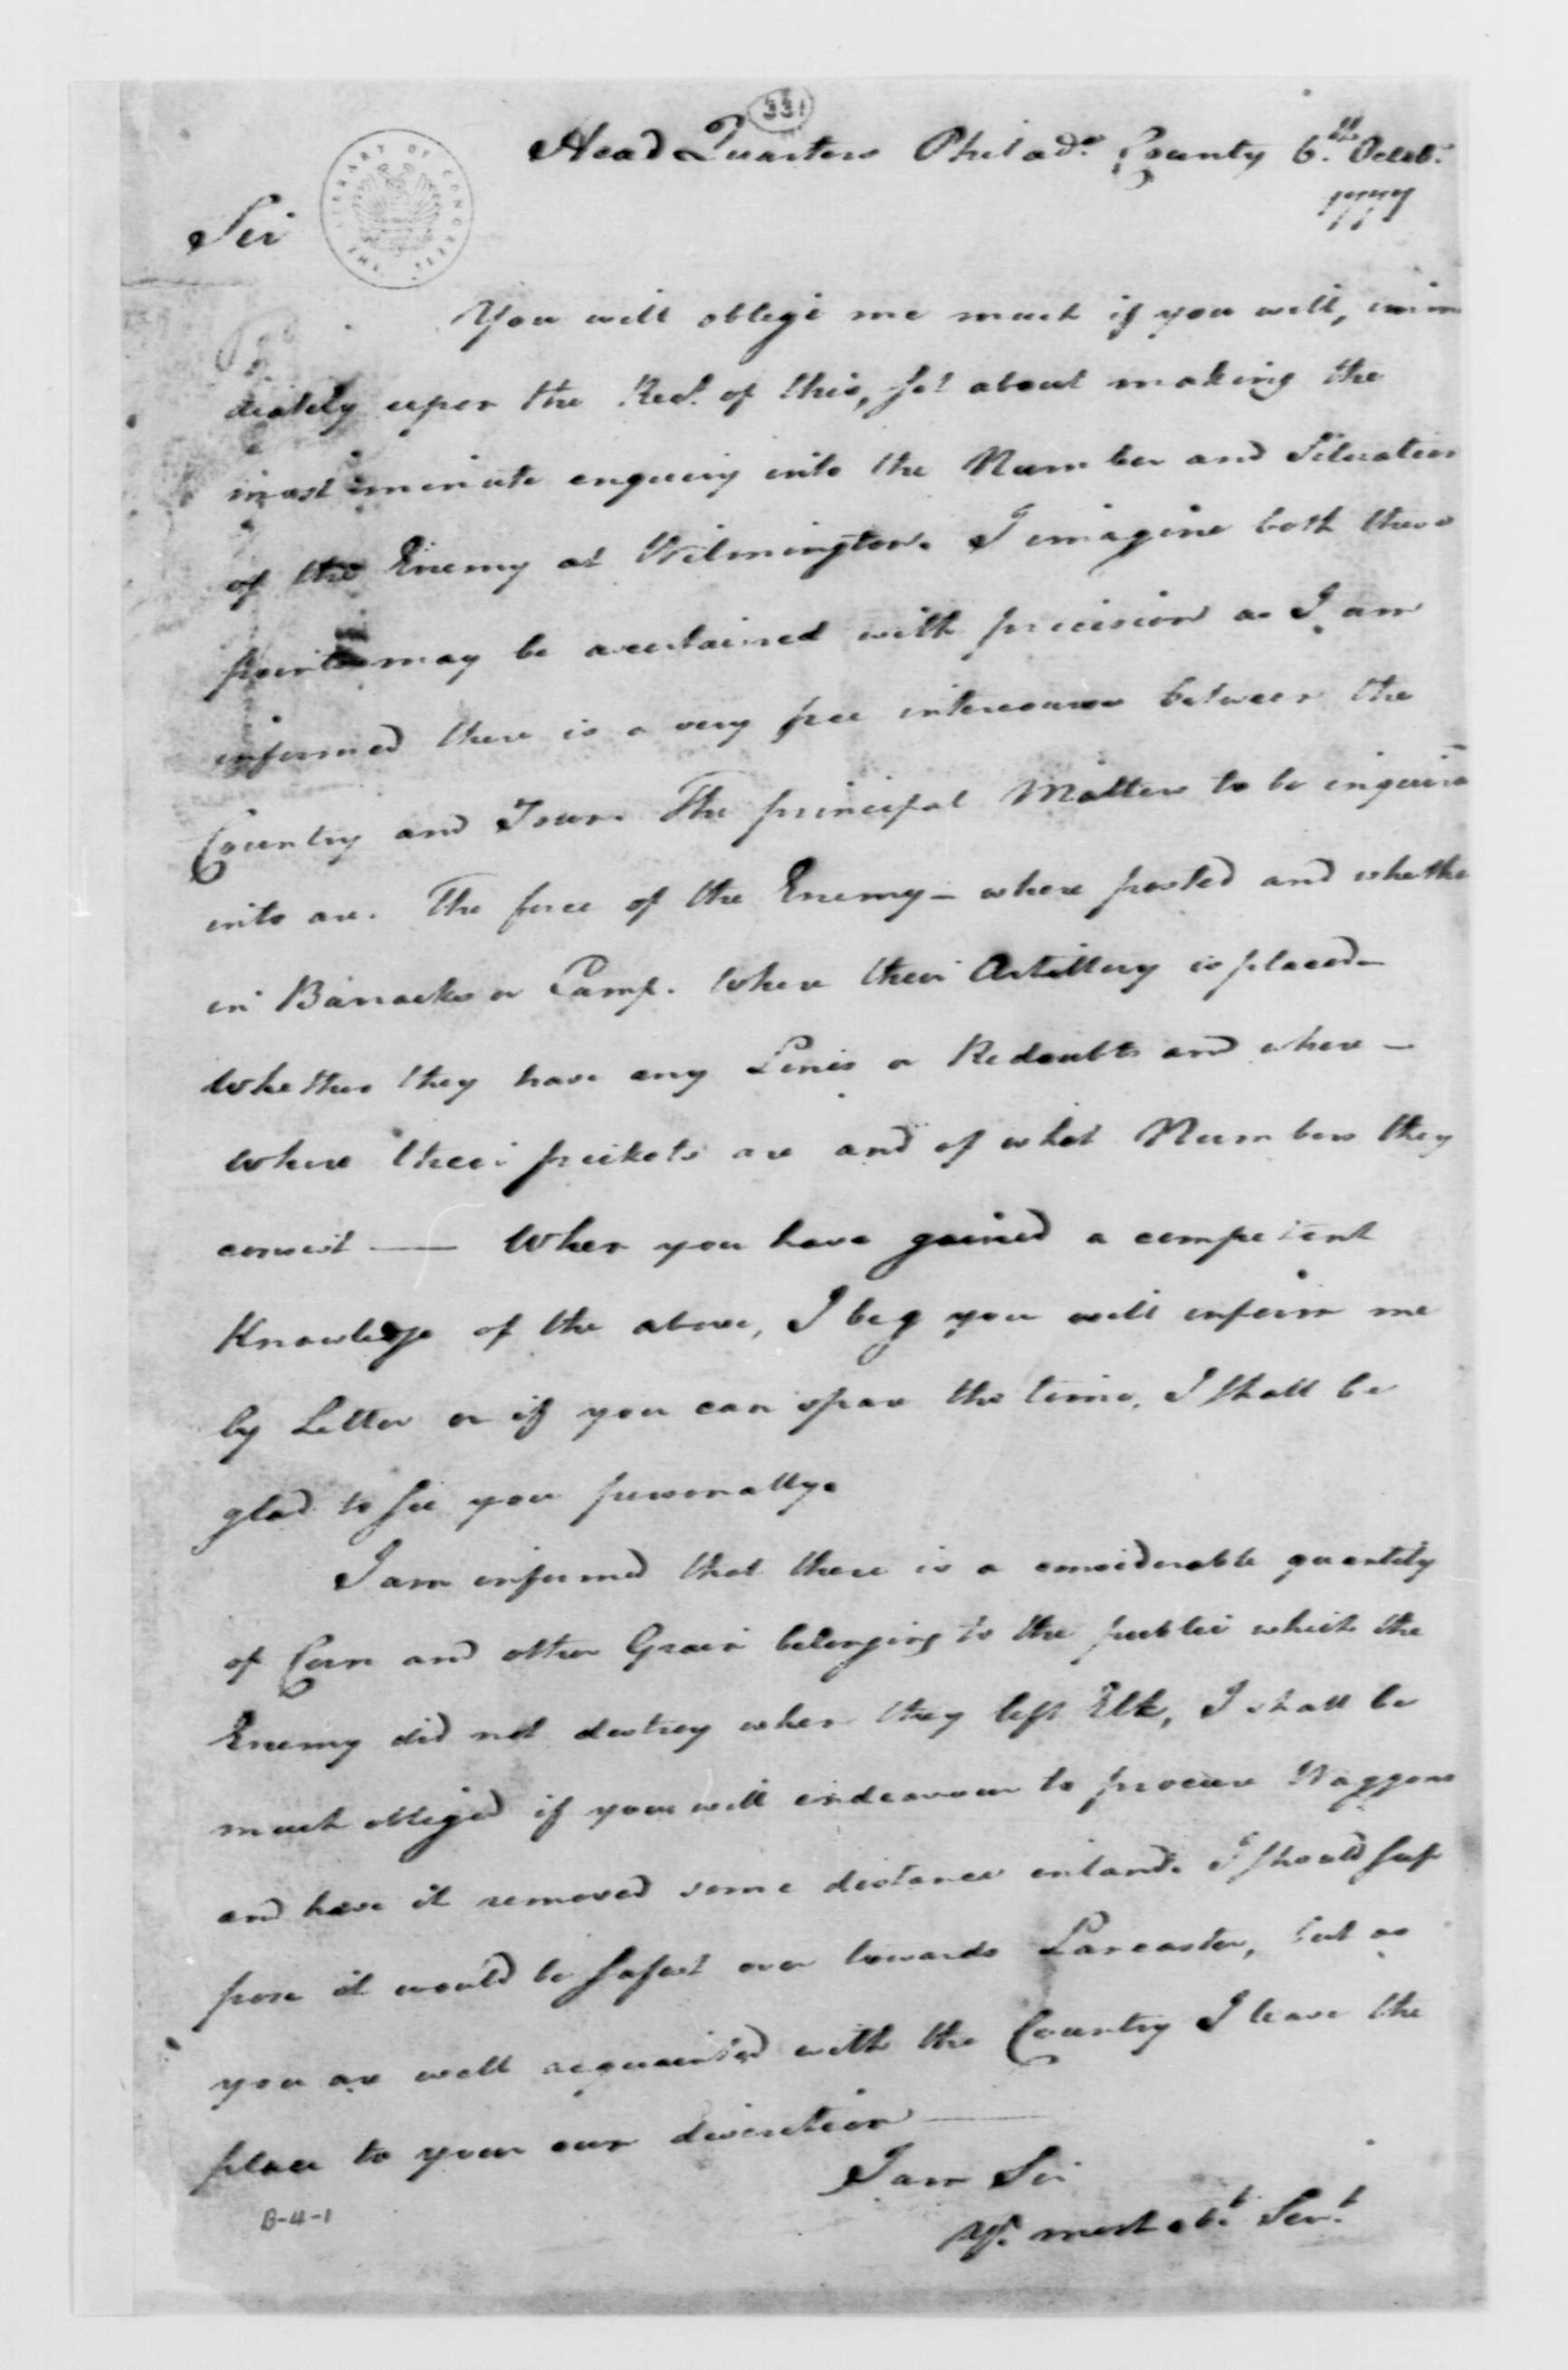 331
Head Quarters Philada. County 6th. Octob.
1777
THE LIBRARY OF CONGRESS
Sir
You will oblige me much if you will, imme
diately upon the Rect. of this, set about making the
most minute enquiry into the Number and Situation
of the Enemy at Wilmington. I imagine both these
points may be ascertained with precision as I am
informed there is a very free intercourse between the
Country and Town. The principal Matters to be inquired
into are. The force of the Enemy – where posted and whether
in Barracks or Camp. Where their Artillery is placed –
Whether they have any Lines or Redoubts and where –
Where their pickets are and of what Numbers they
consist — When you have gained a competent
Knowledge of the above, I beg you will inform me
by Letter or if you can spare the time, I shall be
glad to see you personally.
I am informed that there is a considerable quantity
of Corn and other Grain belonging to the public which the
Enemy did not destroy when they left Elk, I shall be
much obliged if you will endeavour to procure Waggons
and have it removed some distance inland. I should sup
pose it would be safest over towards Lancaster, but as
you are well acquainted with the Country I leave the
place to your own discretion —
I am Sir
Yr. most obt. Servt.
B-4-1